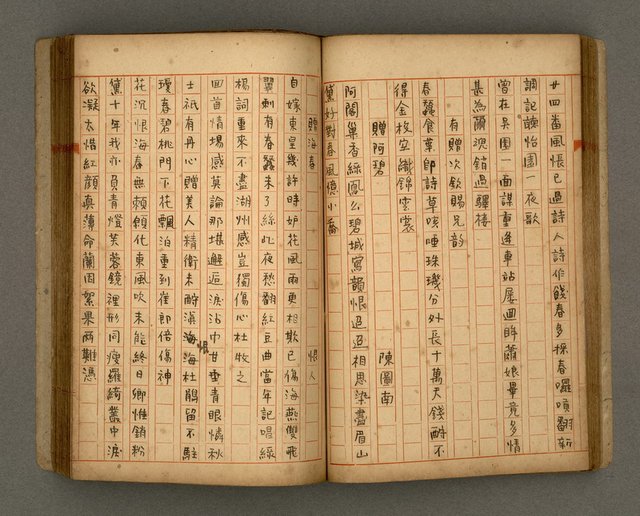 廿四番風悵已過詩人詩作餞春多採春囉嗊翻新
調記聽怡園一夜歌
曾在吳園一面謀重逢車站屢回眸蕭娘畢竟多情
甚為爾魂銷過驛樓
有贈次欽賜兄韵
春蠶食葉即詩草咳唾珠璣分外長十萬天錢酬不
得金梭空織錦雲裳
贈阿碧
陳圖南
阿閣巢香綵鳳公碧城寫韻恨迢迢相思染盡眉山
黛好對春風憶小喬
贈海春
恨人
自嫁東皇幾許時妒花風雨更相欺已傷海燕雙飛
翼剩有春蠶未了絲紅夜愁翻紅豆曲當年記唱綠
楊詞重來不盡湖州感豈獨傷心杜牧之
回首情場感莫論那堪邂逅淚沾巾甘垂青眼憐秋
士祇有丹心贈美人精衛未酬滇海恨杜鵑留不駐
瓊春碧桃門下花飄泊重到崔郎倍傷神
花沉恨海春無賴願化東風吹未能終日卿惟銷粉
黛十年我亦負青燈芙蓉鏡裡形同瘦羅綺叢中淚
欲凝太惜紅顏真薄命蘭因絮果兩難憑